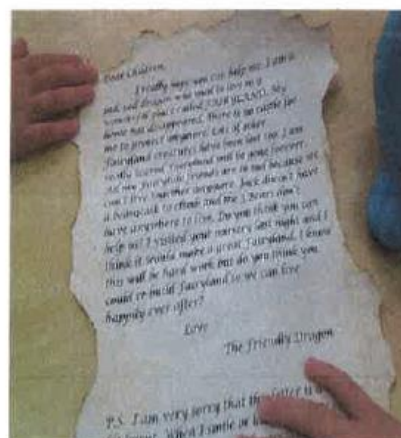 Dear Children,
I really hope you can help me. I am a
sad, sad dragon who used to live in a
wonderful place called FAIRYLAND. My
home has disappeared. There is no castle for
me to protect anymore. Lots of other
fairyland creatures have been lost too. I am
really scared Fairyland will be gone forever.
All my fairytale friends are so sad because we
can't live together anymore. Jack doesn't have
a beanstalk to climb and the 3 Bears don't
have anywhere to live. Do you think you can
help us? I visited your nursery last night and I
think it would make a great Fairyland. I know
this will be hard work but do you think you
could re-build Fairyland so we can live
happily ever after?
Love
The Friendly Dragon
P.S. I am very sorry that this letter is a
When I smile or